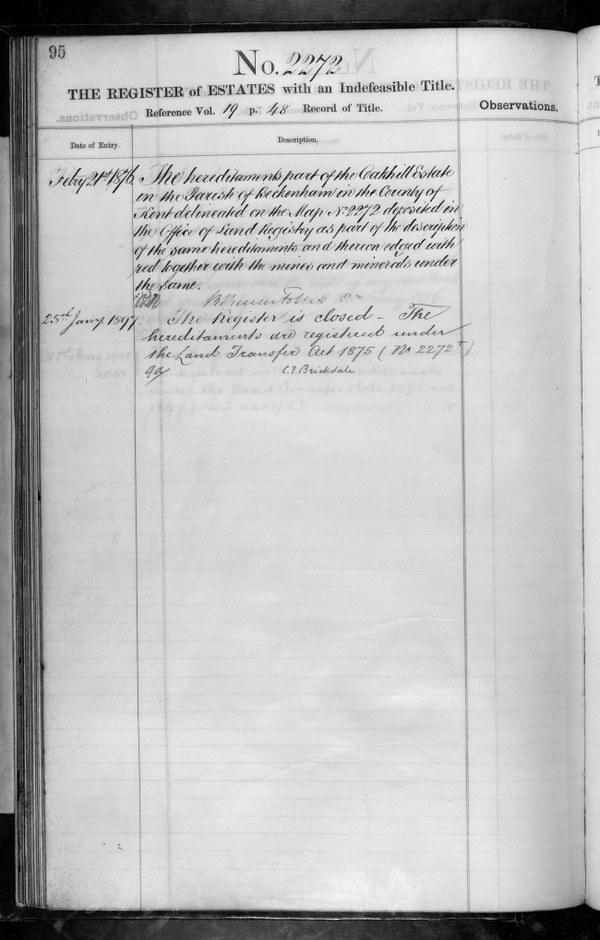 95
No. 2272
THE REGISTER of ESTATES with an Indefeasible Title.
Reference Vol. 19 p. 48 Record of Title.
Observations.
Date of Entry.
Description.
Febry 21st 1876. The hereditaments part of the Oakhill Estate
in the Parish of Beckenham in the County of
Kent delineated on the Map No 2272 deposited in
the Office of Land Registry as part of the description
of the same hereditaments and thereon edged with
red together with the mines and minerals under
the same.
25th Jany 1897 The Register is closed - The
hereditaments are registered under
the Land Transfer Act 1875 (No 2272)
C.F. Brickdale